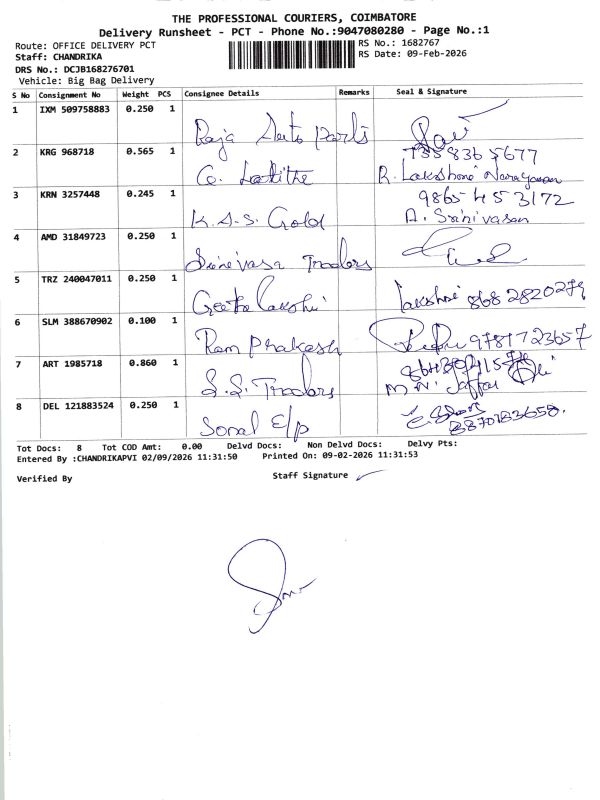 THE PROFESSIONAL COURIERS, COIMBATORE
Delivery Runsheet - PCT - Phone No.:9047080280 - Page No.:1
Route: OFFICE DELIVERY PCT
RS No.: 1682767
Staff: CHANDRIKA
RS Date: 09-Feb-2026
DRS No.: DCJB168276701
Vehicle: Big Bag Delivery
S No Consignment No Weight PCS Consignee Details Remarks Seal & Signature
1 IXM 509758883 0.250 1 Raja Auto Parts
2 KRG 968718 0.565 1 G. R. Lakshmi Narayanan
9865453172
3 KRN 3257448 0.245 1 K.S.S. Gold A. Srinivasan
4 AMD 31849723 0.250 1 Srinivasa Traders
5 TRZ 240047011 0.250 1 Geetha Lakshmi Lakshmi
6 SLM 388670902 0.100 1 Ram Prakash 9781723657
7 ART 1985718 0.860 1 S.S. Traders
8 DEL 121883524 0.250 1 Sonal E/p
Tot Docs: 8 Tot COD Amt: 0.00 Delvd Docs: Non Delvd Docs: Delvy Pts:
Entered By :CHANDRIKAPVI 02/09/2026 11:31:50 Printed On: 09-02-2026 11:31:53
Verified By Staff Signature